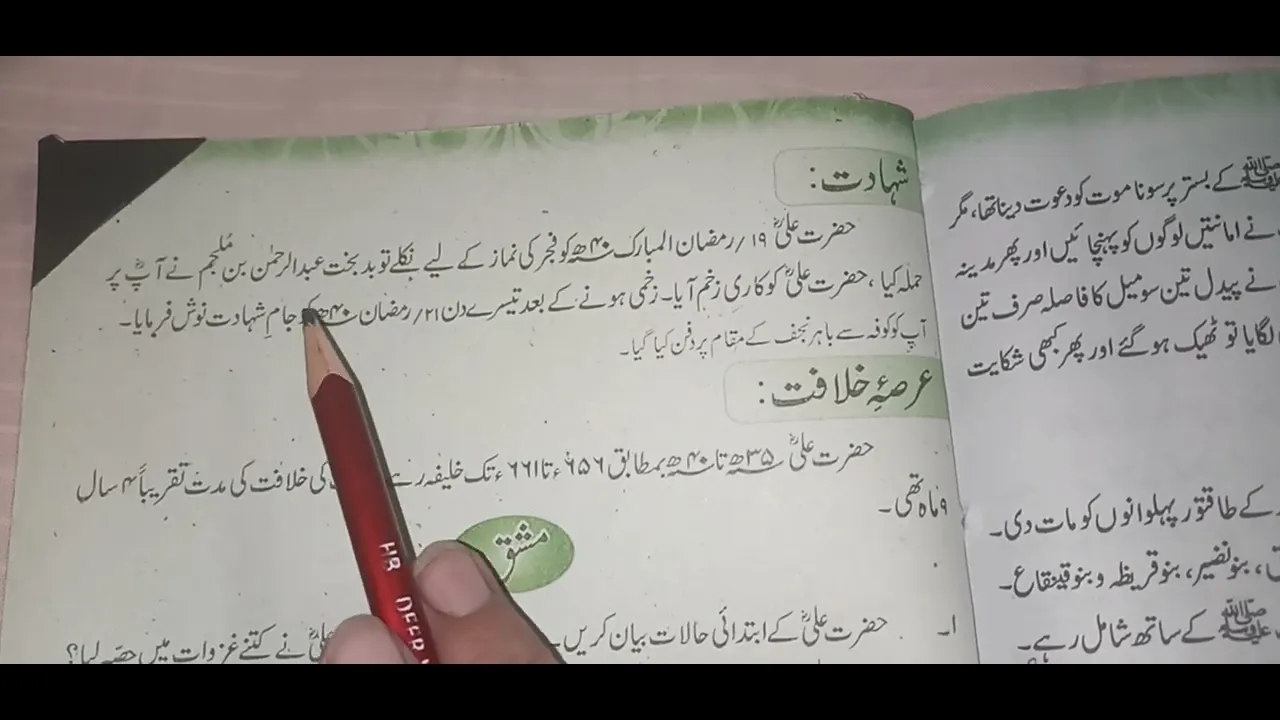 شہادت:
حضرت علیؓ ۱۹/رمضان المبارک ۴۰ھ کو فجر کی نماز کے لیے نکلے تو بدبخت عبدالرحمٰن بن مُلجم نے آپؓ پر
حملہ کیا، حضرت علیؓ کو کاری زخم آیا۔ زخمی ہونے کے بعد تیسرے دن ۲۱/رمضان ۴۰ھ کو جامِ شہادت نوش فرمایا۔
آپ کو کوفہ سے باہر نجف کے مقام پر دفن کیا گیا۔
عرصۂ خلافت:
حضرت علیؓ ۳۵ھ تا ۴۰ھ بمطابق ۶۵۶ء تا ۶۶۱ء تک خلیفہ رہے کی خلافت کی مدت تقریباً ۴ سال
۹ ماہ تھی۔
مشق
۱۔ حضرت علیؓ کے ابتدائی حالات بیان کریں۔
علیؓ نے کتنے غزوات میں حصّہ لیا؟
ﷺ کے بستر پر سونا موت کو دعوت دینا تھا، مگر
نے امانتیں لوگوں کو پہنچائیں اور پھر مدینہ
نے پیدل تین سو میل کا فاصلہ صرف تین
لگایا تو ٹھیک ہو گئے اور پھر کبھی شکایت
کے طاقتور پہلوانوں کو مات دی۔
، بنو نضیر، بنو قریظہ و بنو قینقاع۔
ﷺ کے ساتھ شامل رہے۔